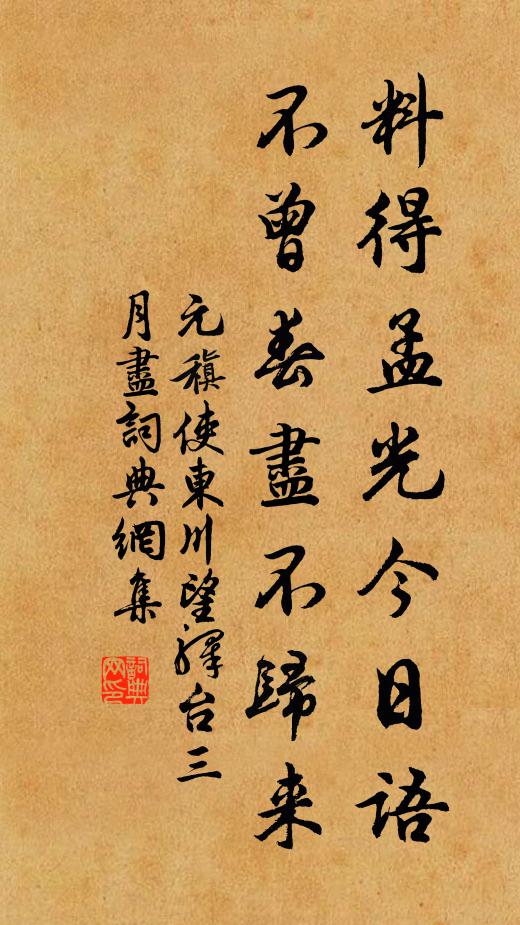 料得孟光今日語
不曾春盡不歸来
元稹使東川望驛台三
月盡詞典網集
詞典
网印